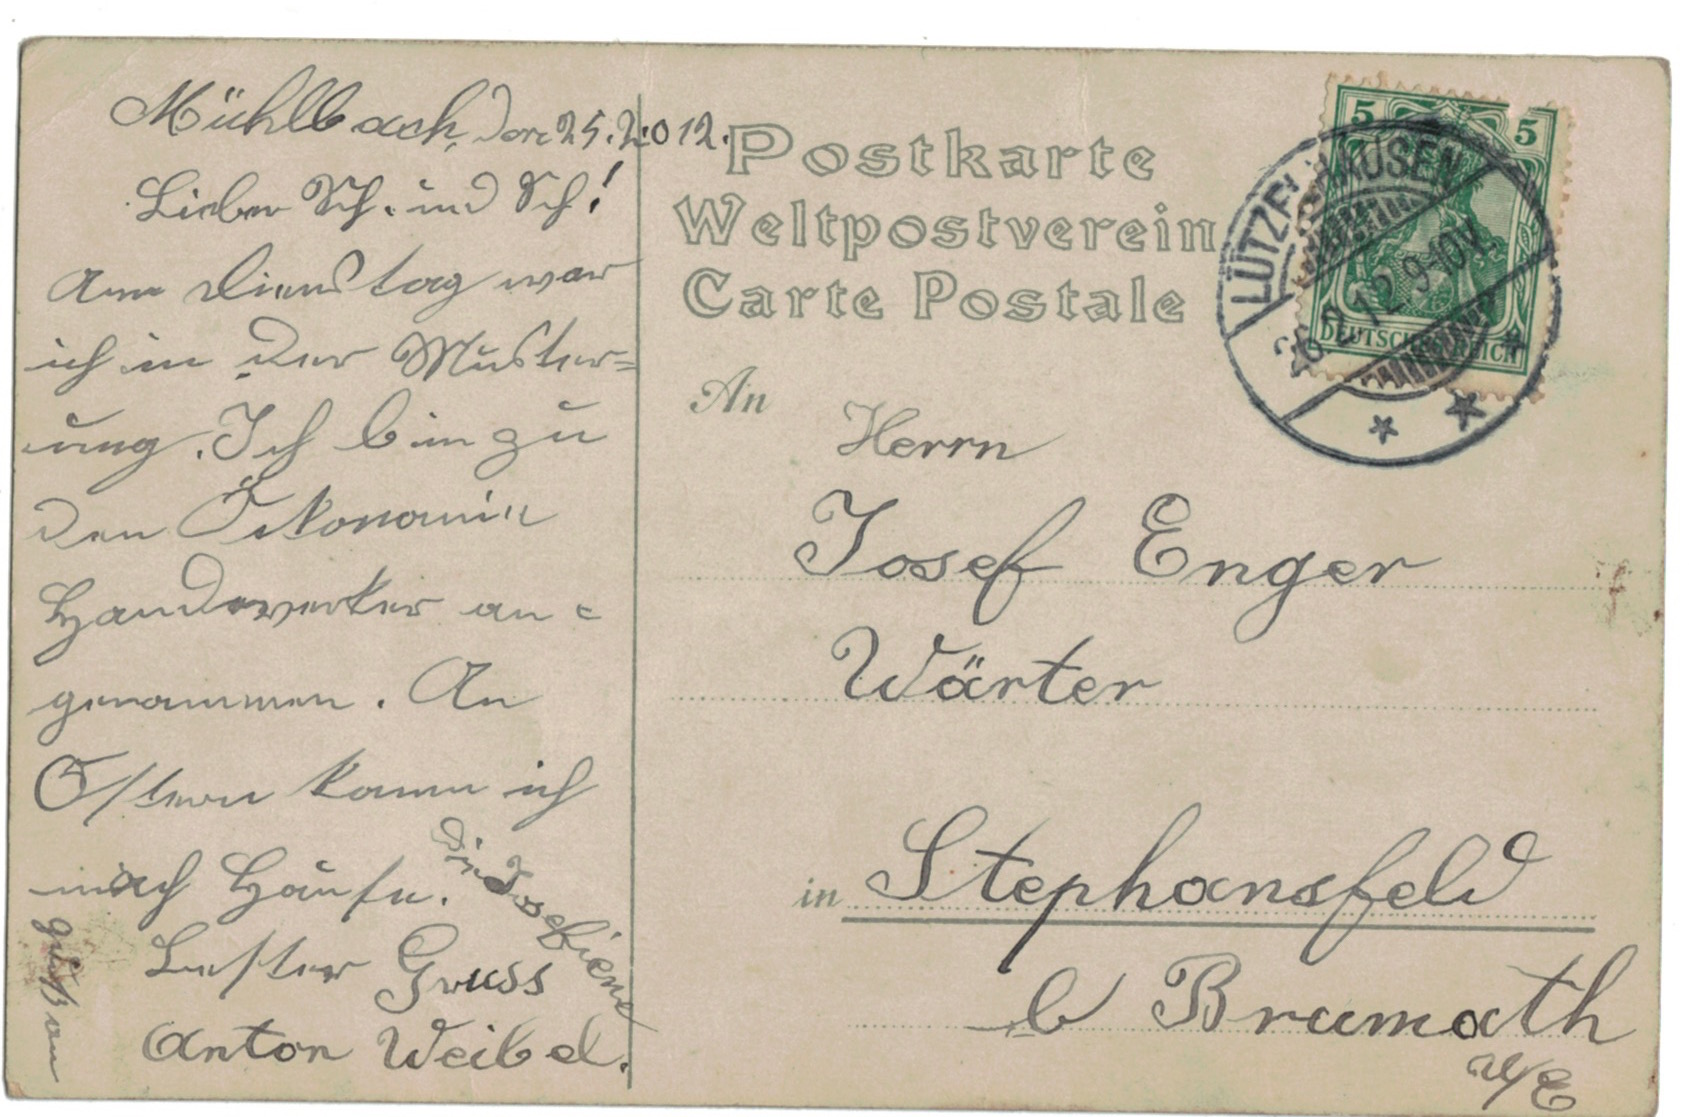 Mühlbach, den 25.2.1912.
Lieber Sch. und Sch!
Am Dienstag war
ich in der Muster=
ung. Ich bin zu
den Ökonomie
Handwerker an=
genommen. An
Ostern komm ich
nach Hause.
Bester Gruss
Anton Weibel.
gruß an
die Josefiene
Postkarte
Weltpostverein
Carte Postale
5 5
DEUTSCHES REICH
LÜTZELHAUSEN
26.2.12.9-10V.
An
Herrn
Josef Enger
Wärter
in Stephansfeld
b Brumath
U/E